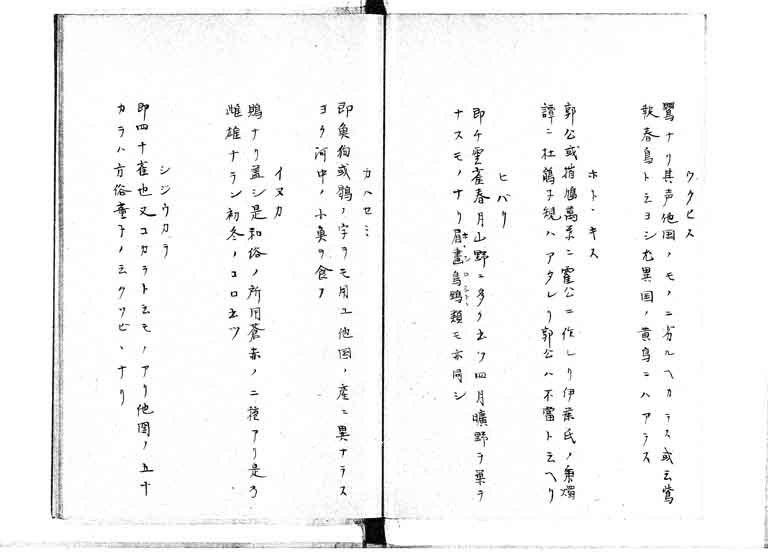 ウクヒス
鶯ナリ其声他国ノモノニ劣ルヘカラス或云鶯
歌春鳥トヨシ尤異国ノ黄鳥ニハアラス
ホトヽキス
郭公或指鳩萬葉ニ霍公ニ作レリ伊葉氏ノ秉燭
譚ニ杜鵑子規ハアタレリ郭公ハ不當ト云ヘリ
ヒバリ
即チ雲雀春月山野ニ多ク出ツ四月曠野ヲ巣ヲ
ナスモノナリ眉畫鳥鵐類モ亦同シ
カハセミ
即魚狗或鴗ノ字ヲモ用ユ他国ノ産ニ異ナラス
ヨク河中ノ小魚ヲ食フ
イスカ
鵙ナリ蓋シ是和俗ノ所用蒼赤ノ二種アリ是ヲ
雌雄ナラン初冬ノコロ出ツ
シジウカラ
即四十雀也又コカラト云モノアリ他國ノ五十
カラハ方俗童子ノ云クソビヽナリ